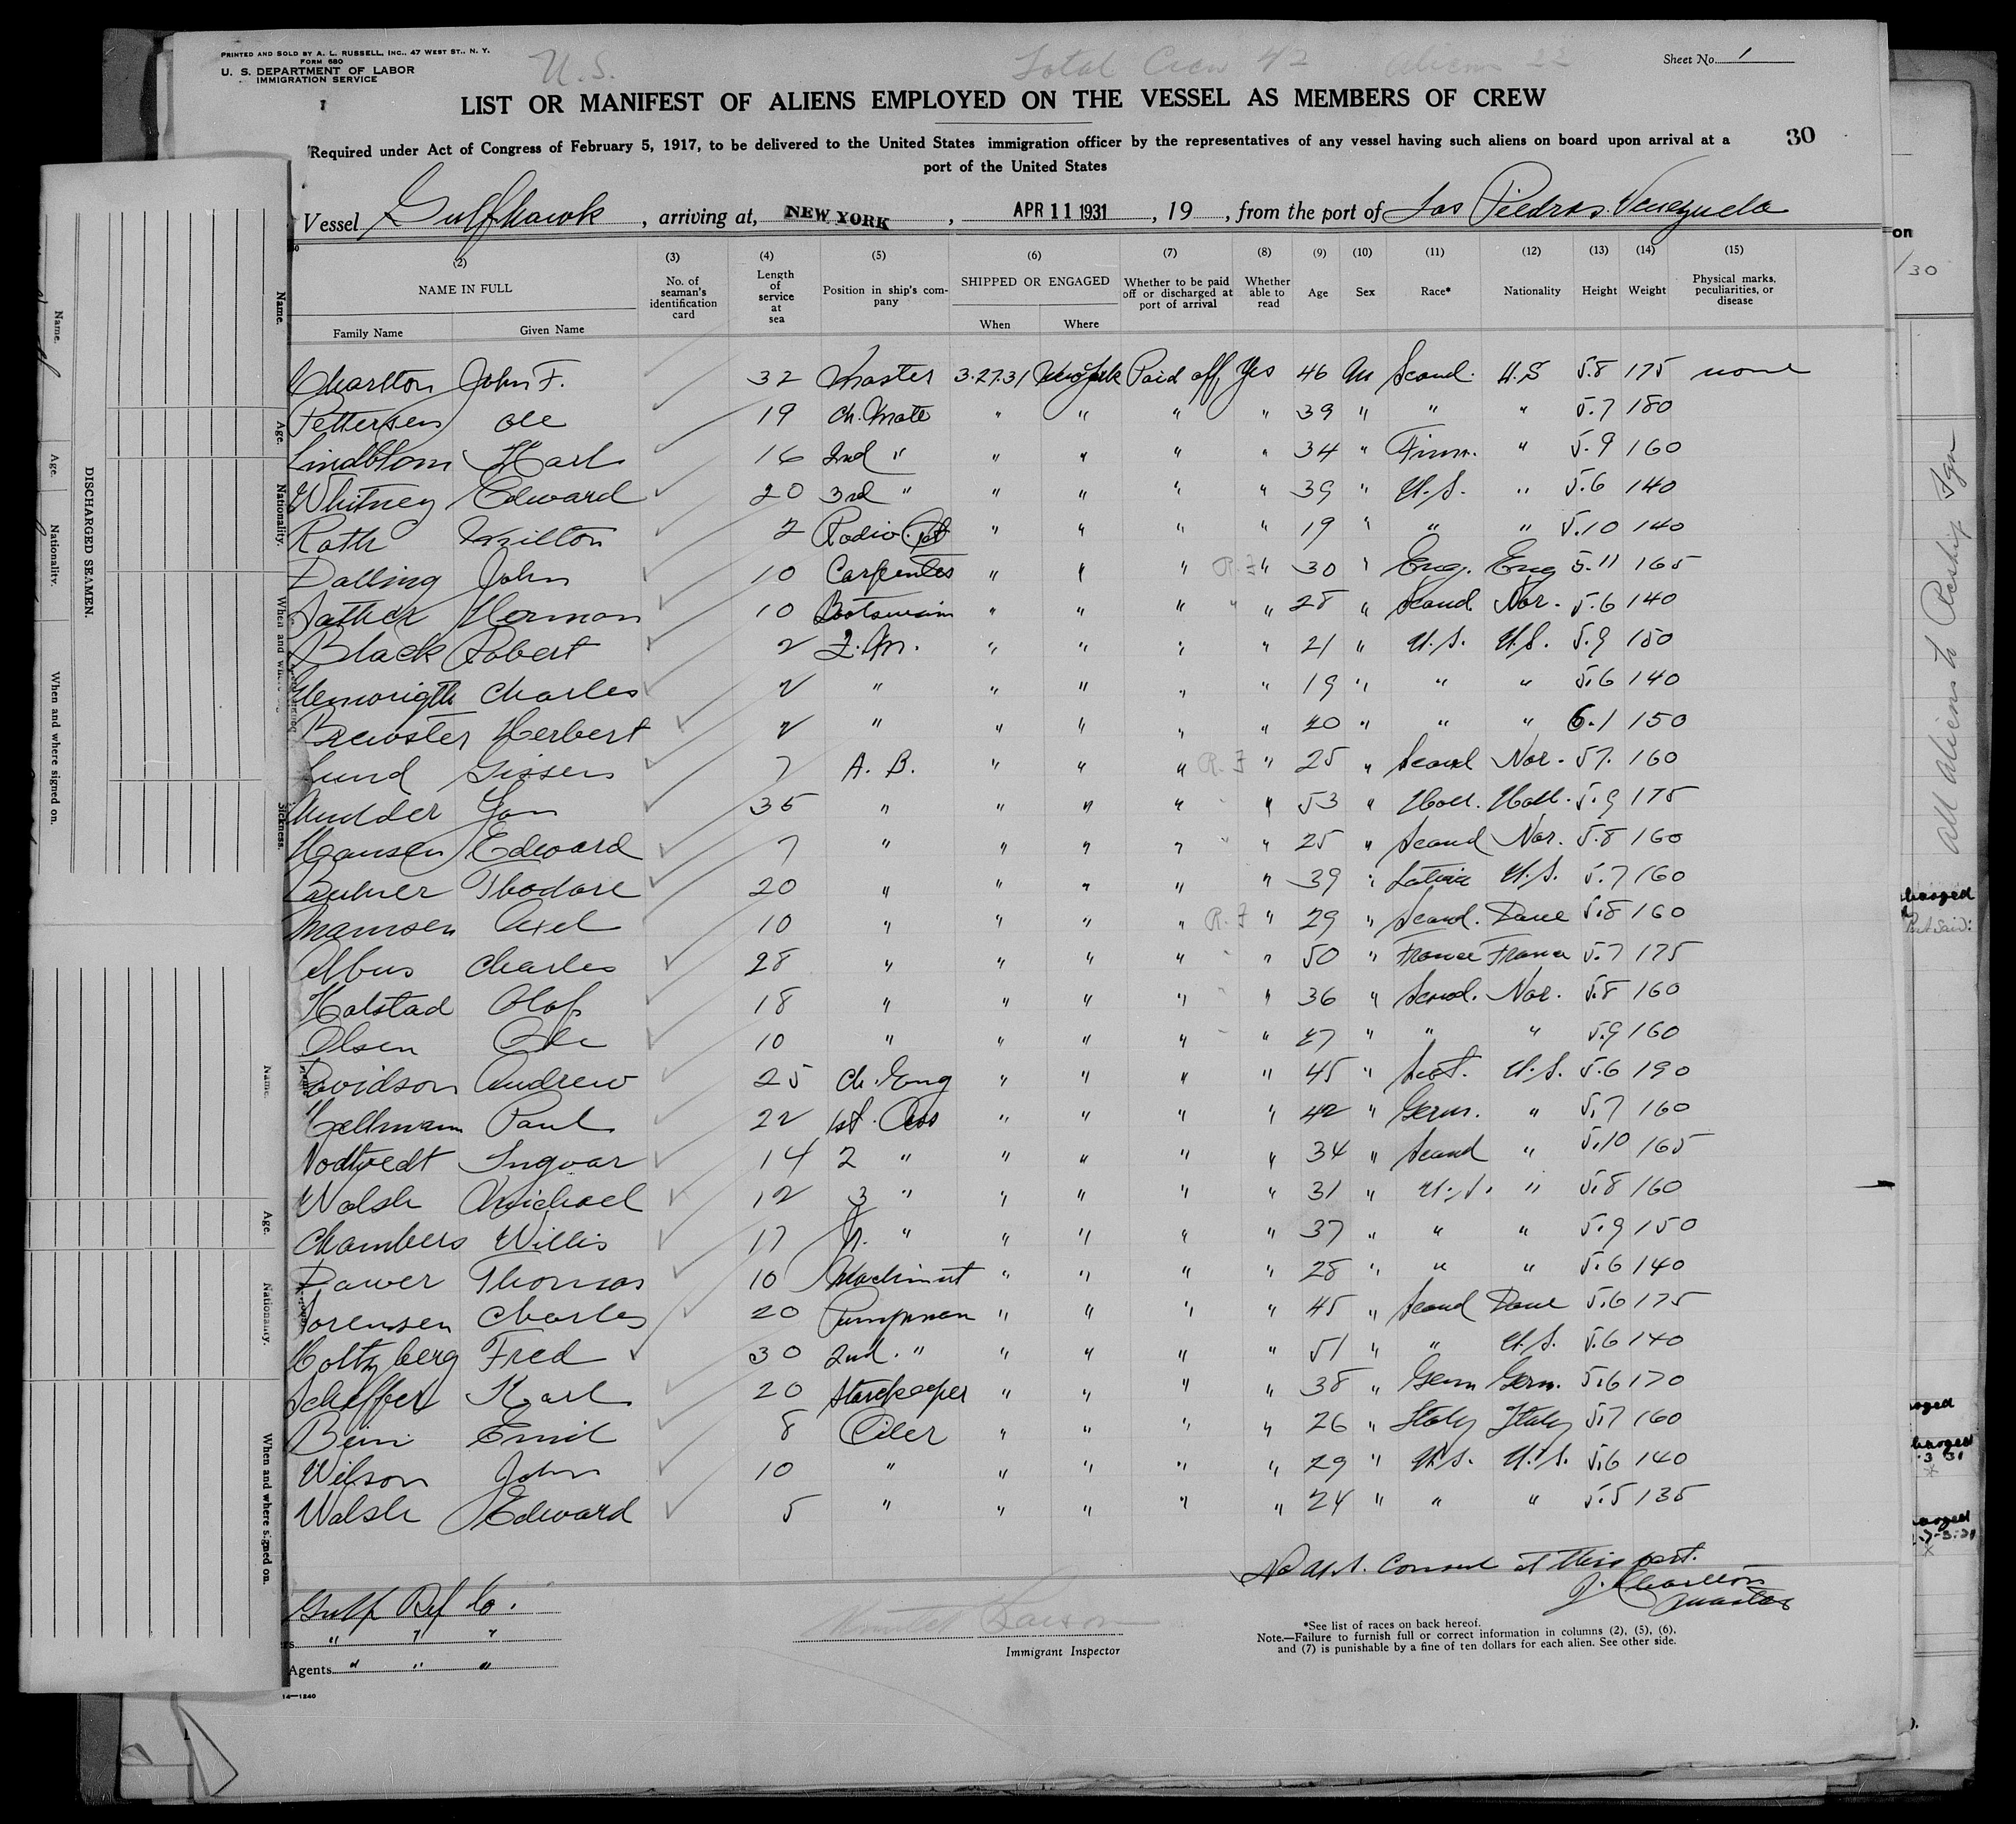 PRINTED AND SOLD BY A. L. RUSSELL, INC., 47 WEST ST., N. Y.
FORM 680
U. S. DEPARTMENT OF LABOR
IMMIGRATION SERVICE
U.S.
Total Crew 42 Aliens 22
Sheet No. 1
LIST OR MANIFEST OF ALIENS EMPLOYED ON THE VESSEL AS MEMBERS OF CREW
Required under Act of Congress of February 5, 1917, to be delivered to the United States immigration officer by the representatives of any vessel having such aliens on board upon arrival at a
port of the United States
30
Vessel Gulfhawk, arriving at, NEW YORK, APR 11 1931, 19, from the port of Las Piedras Venezuela
(2) (3) (4) (5) (6) (7) (8) (9) (10) (11) (12) (13) (14) (15)
NAME IN FULL No. of seaman's identification card Length of service at sea Position in ship's company SHIPPED OR ENGAGED Whether to be paid off or discharged at port of arrival Whether able to read Age Sex Race* Nationality Height Weight Physical marks, peculiarities, or disease
Family Name Given Name When Where
Charlton John F. 32 Master 3.27.31 New York Paid off Yes 46 M Scand. U.S 5.8 175 none
Pettersen Ole 19 Ch. Mate " " " " 39 " " " 5.7 180
Lindblom Karl 16 2nd " " " " " 34 " Finn. " 5.9 160
Whitney Edward 20 3rd " " " " " 39 " U.S. " 5.6 140
Roth Milton 2 Radio Opt " " " " 19 " " " 5.10 140
Dalling John 10 Carpenter " " " " 30 " Eng. Eng 5.11 165
Sather Herman 10 Bootswain " " " " 28 " Scand Nor. 5.6 140
Black Robert 2 Q.M. " " " " 21 " U.S. U.S. 5.9 150
Charles 2 " " " " " 19 " " " 5.6 140
Brewster Herbert 2 " " " " " 20 " " " 6.1 150
Lund 7 A. B. " " " R.F " 25 " Scand Nor. 5 7. 160
Mulder Jan 35 " " " " " 53 " Holl. Holl. 5.9 175
Hansen Edward 7 " " " " " 25 " Scand Nor. 5.8 160
Theodore 20 " " " " " 39 " Latvia U.S. 5.7 160
Mamsen Axel 10 " " " " R.F " 29 " Scand. Dane 5.8 160
Albus Charles 28 " " " " " 50 " France France 5.7 175
Halstad Olof 18 " " " " " 36 " Scand. Nor. 5.8 160
Olsen Ole 10 " " " " " 27 " " " 5.9 160
Davidson Andrew 25 Ch. Eng " " " " 45 " Scot. U.S. 5.6 190
Hellmann Paul 22 1st. Ass " " " " 42 " Germ. " 5.7 160
Nodtvedt Ingvar 14 2 " " " " " 34 " Scand " 5.10 165
Walsh Michael 12 3 " " " " " 31 " U.S. " 5.8 160
Chambers Willis 17 Jr. " " " " " 37 " " " 5.9 150
Dawer Thomas 10 Machinist " " " " 28 " " " 5.6 140
Sorensen Charles 20 Pumpman " " " " 45 " Scand Dane 5.6 175
Holtzberg Fred 30 2nd. " " " " " 51 " " U.S. 5.6 140
Scheffer Karl 20 Storekeeper " " " " 38 " Germ Germ. 5.6 170
Emil 8 Oiler " " " " 26 " Italy Italy 5.7 160
Wilson John 10 " " " " " 29 " U.S. U.S. 5.6 140
Walsh Edward 5 " " " " " 24 " " " 5.5 135
No U.S. Consul at this port.
J. Charlton
Master
Gulf Ref Co.
" " "
Agents " " "
Immigrant Inspector
*See list of races on back hereof.
Note.—Failure to furnish full or correct information in columns (2), (5), (6),
and (7) is punishable by a fine of ten dollars for each alien. See other side.
14—1240
DISCHARGED SEAMEN.
Name. Age. Nationality. When and where signed on.
Name. Age. Nationality. When and where Sickness.
Name. Age. Nationality. When and where signed on.
All Aliens to Reship Fgn